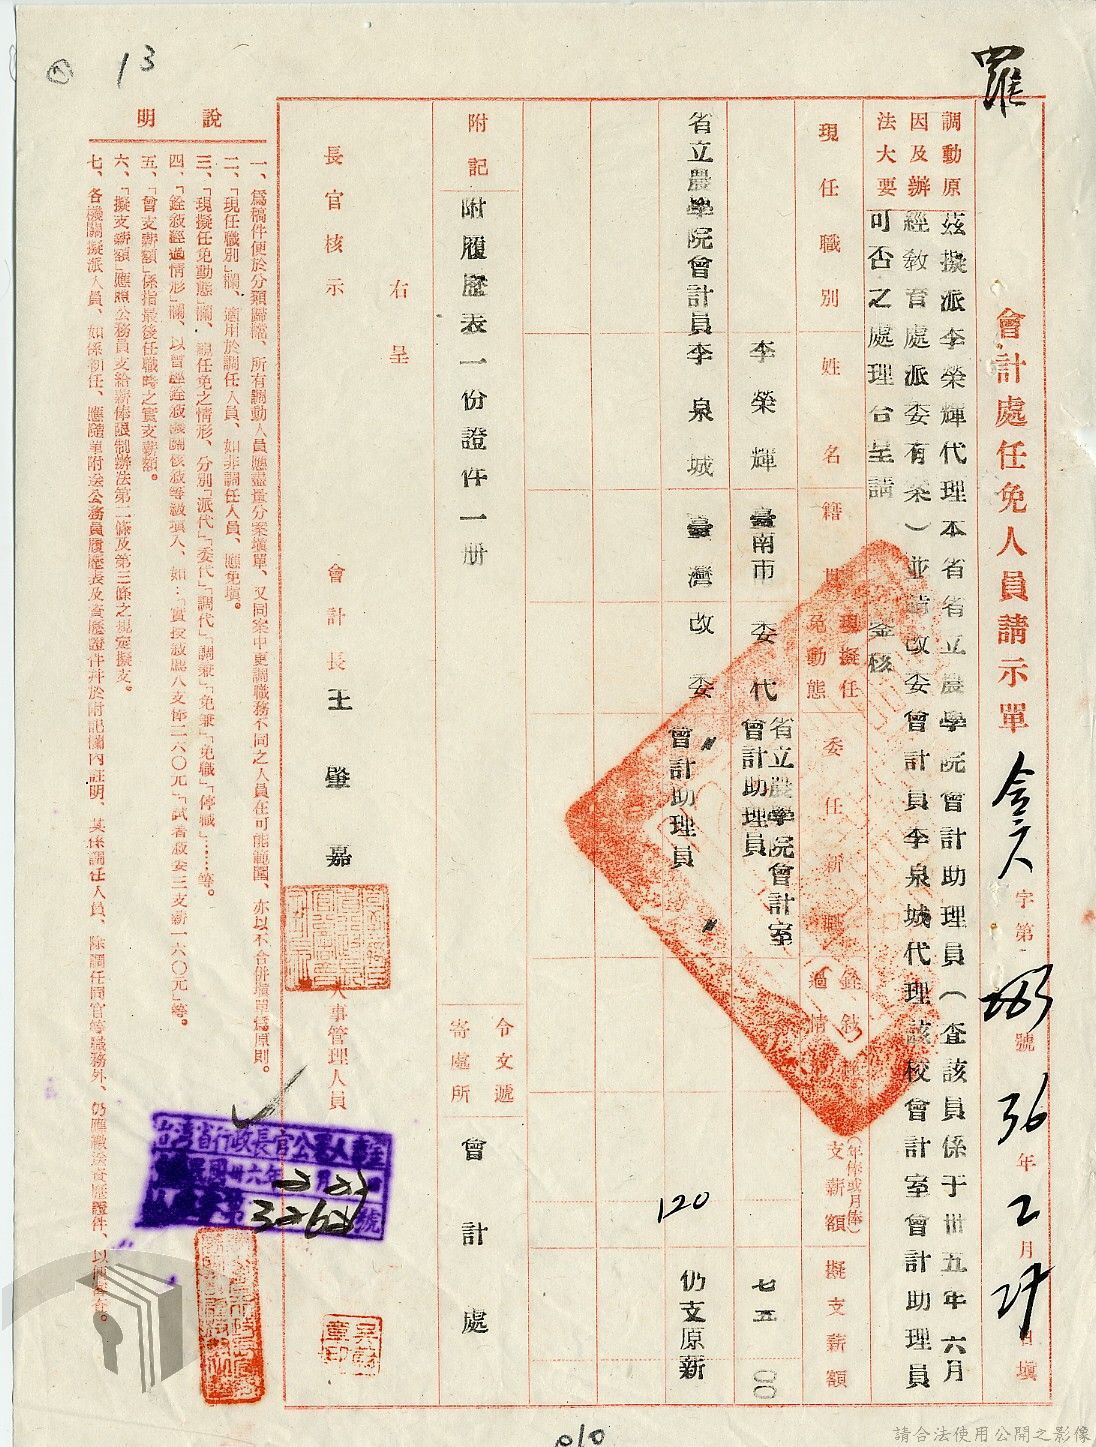 羅
13
會計處任免人員請示單
字第
號
36年2月
日填
調動原因及辦法大要
茲擬派李榮輝代理本省省立農學院會計助理員(查該員係于卅五年六月
經教育處派委有案)並請改委會計員李泉城代理該校會計室會計助理員
可否之處理合呈請
鉴核
現任職別
姓名
籍貫
現擬任免動態
委任新職
銓敍經過情形
(年俸或月俸)支薪額
擬支薪額
李榮輝
臺南市
委代
省立農學院會計室會計助理員
七五
00
省立農學院會計員
李泉城
臺灣
改委
〃 〃
會計助理員
120
仍支原薪
附記
附履歷表一份證件一册
令文遞寄處所
會計處
右呈
長官核示
會計長王肇嘉
人事管理人員
台灣省行政長官公署人事室
民國卅六年
月
號
說明
一、爲稿件便於分類歸檔、所有調動人員應盡量分案填單、又同案中更調職務不同之人員在可能範圍、亦以不合併填單爲原則。
二、「現任職別」欄、適用於調任人員、如非調任人員、應免填。
三、「現擬任免動態」欄、總任免之情形、分別「派代」「委代」「調代」「調兼」「免兼」「免職」「停職」……等。
四、「銓敍經過情形」欄、以曾經銓敍機關核敍等級填入、如:「實授敍薦八支俸二六〇元」「試署敍委三支薪一六〇元」等。
五、「曾支薪額」係指最後任職時之實支薪額。
六、「擬支薪額」應照公務員支給薪俸限制辦法第二條及第三條之規定擬支。
七、各機關擬派人員、如係初任、應隨單附送公務員履歷表及資歷證件并於附記欄內註明、其係調任人員、除調任同官等職務外、仍應檢送資歷證件、以便審查。
010
請合法使用公開之影像